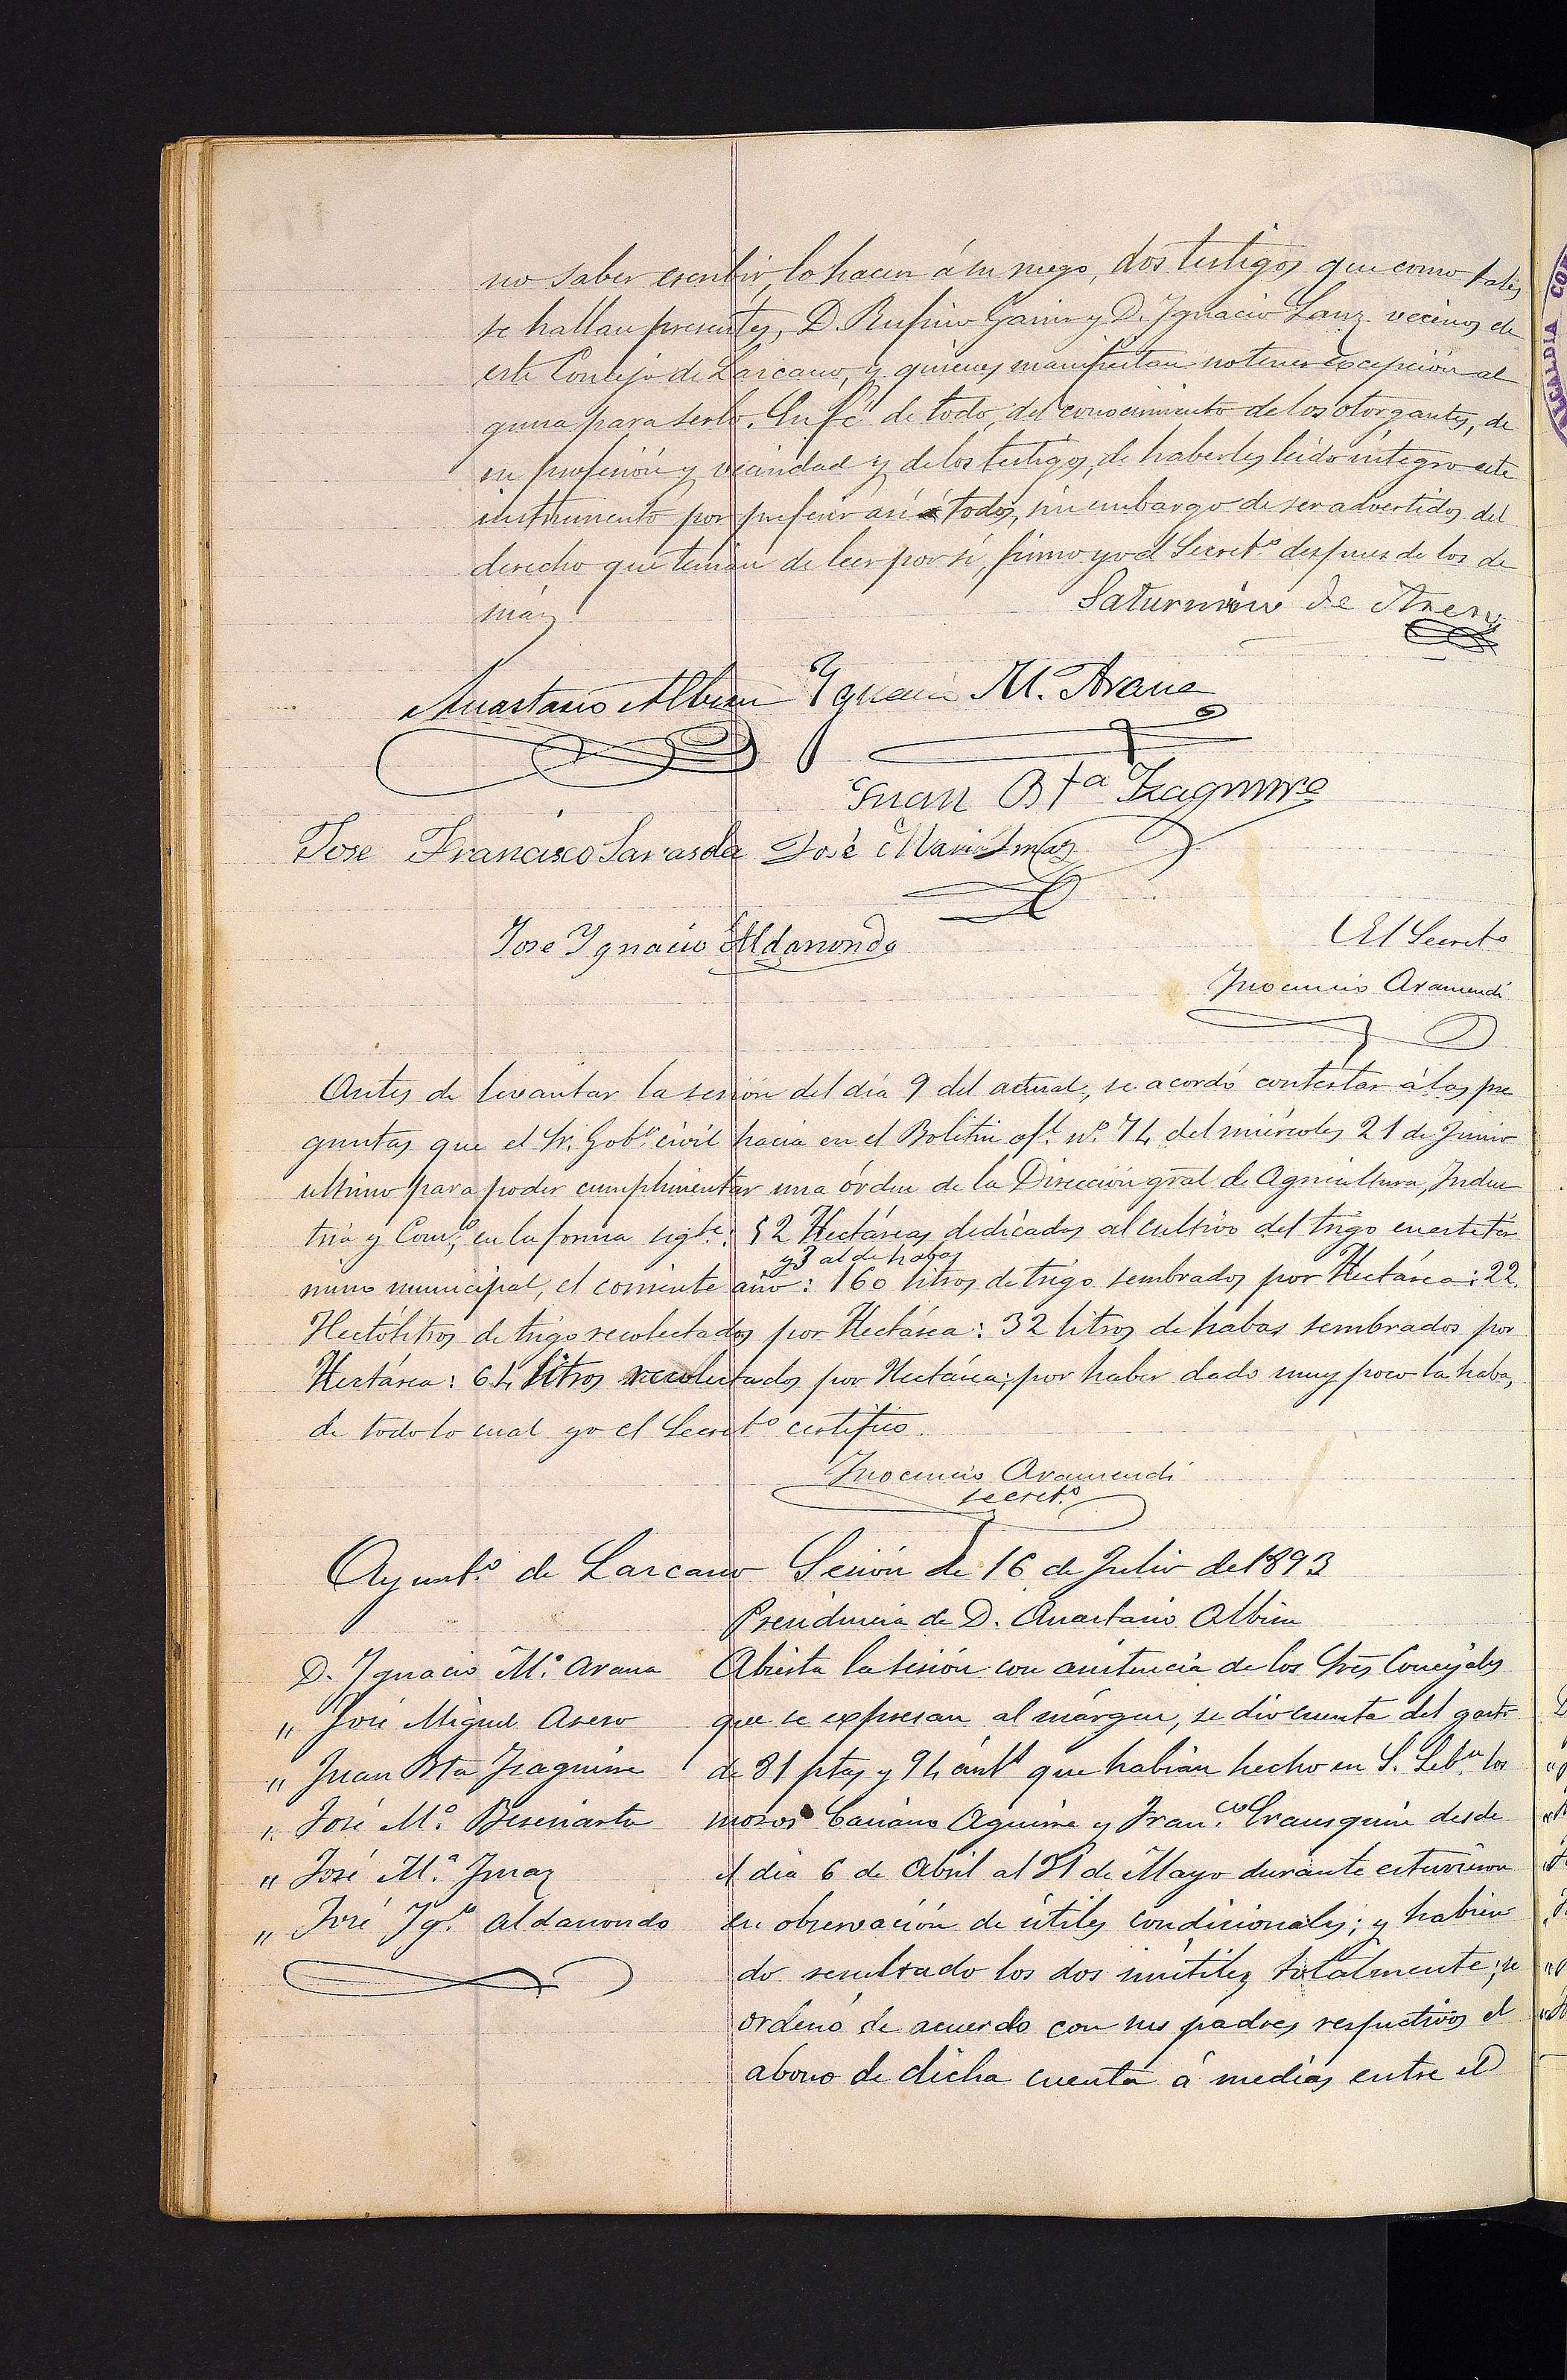 no saber escribir, lo hacen á su ruego, dos testigos que como tales
se hallan presentes, D. Rufino Garin y D. Ygnacio Sanz vecinos de
este Concejo de Lazcano, y quienes manifiestan no tener excepción al
guna para serlo. En fé de todo, del conocimiento de los otorgantes, de
su profesión y vecindad y de los testigos, de haberles leido integro este
instrumento por preferir así todos, sin embargo de ser advertidos del
derecho que tenian de leer por sí, firmo yo el Secretº despues de los de
más
Saturnino de
Anastasio Albisu Ygnacio M. Arana
Juan Bta Yzaguirre
Jose Francisco Sarasola José Maria Imaz
Jose Ygnacio Aldanondo
El Secretº
Ynocencio Aramendi
Antes de levantar la sesión del día 9 del actual, se acordó contestar á las pre
guntas que el Sr. Gobr. civil hacia en el Boletin ofl. nº 74 del miércoles 21 de Junio
ultimo para poder cumplimentar una órden de la Dirección gral de Agricultura, Indus
tria y Comº, en la forma sigte: 52 Hectáreas dedicadas al cultivo del trigo en este tér
y 3 al de habas
mino municipal, el corriente año: 160 litros de trigo sembrados por Hectárea: 22
Hectólitros de trigo recolectados por Hectárea: 32 litros de habas sembrados por
Hectárea: 64 litros recolectados por Hectárea; por haber dado muy poco la haba,
de todo lo cual yo el Secretº certifico.
Ynocencio Aramendi
secretº
Ayuntº de Lazcano Sesión de 16 de Julio de 1893
Presidencia de D. Anastasio Albisu
D. Ygnacio Mª Arana
" José Miguel Asero
" Juan Bta Yzaguirre
" José Mª Beseriarte
" José Mª Ymaz
" José Ygº Aldanondo
Abierta la sesión con asistencia de los Sres Concejales
que se expresan al márgen, se dio cuenta del gasto
de 81 ptas y 94 cents que habian hecho en S. Sebn los
mozos Casiano Aguirre y Franco. Erausquin desde
el dia 6 de Abril al 31 de Mayo durante estuvieron
en observación de útiles condicionales; y habien
do resultado los dos inútiles totalmente; se
ordenó de acuerdo con sus padres respectivos el
abono de dicha cuenta á medias entre el
ALCALDIA